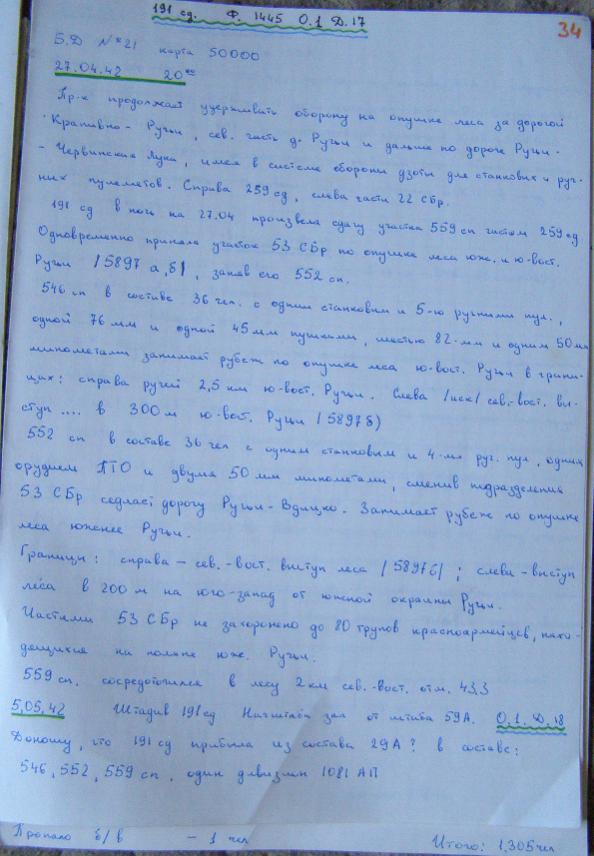 191 сд. Ф. 1445 О.1 Д.17
34
Б.Д №21 карта 50000
27.04.42 20⁰⁰
Пр-к продолжает удерживать оборону на опушке леса за дорогой
Крапивно - Ручьи, сев. часть д. Ручьи и дальше по дороге Ручьи -
- Червинская Лука, имея в системе обороны дзоты для станковых и руч-
ных пулеметов. Справа 259 сд, слева части 22 Сбр.
191 сд в ночь на 27.04 произвела сдачу участка 559 сп частям 259 сд
Одновременно приняла участок 53 Сбр по опушке леса юж. и ю-вост.
Ручьи /5897 а, б/, заняв его 552 сп.
546 сп в составе 36 чел. с одним станковым и 5-ю ручными пул.,
одной 76 мм и одной 45 мм пушками, шестью 82-мм и одним 50 мм
минометами занимает рубеж по опушке леса ю-вост. Ручьи в грани-
цах: справа ручей 2,5 км ю-вост. Ручьи. Слева /иск/ сев.-вост. вы-
ступ .... в 300 м ю-вост. Ручьи /5897б)
552 сп в составе 36 чел с одним станковым и 4-мя руч. пул, одним
орудием ПТО и двумя 50 мм минометами, сменив подразделения
53 Сбр седлает дорогу Ручьи - Вдицко. Занимает рубеж по опушке
леса южнее Ручьи.
Границы: справа - сев.-вост. выступ леса /5897б/; слева - выступ
леса в 200 м на юго-запад от южной окраины Ручьи.
Частями 53 Сбр не захоронено до 80 трупов красноармейцев, нахо-
дящихся на поляне юж. Ручьи.
559 сп. сосредоточился в лесу 2 км сев.-вост. отм. 43,3
5,05,42 Штадив 191 сд от штаба 59А. О.1. Д.18
Доношу, что 191 сд прибыла из состава 29А? в составе:
546, 552, 559 сп, один дивизион 1081 АП
Пропало б/в - 1 чел Итого: 1.305 чел